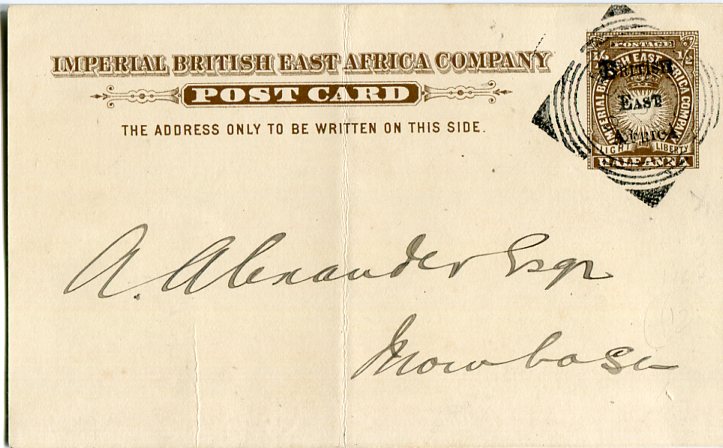 IMPERIAL BRITISH EAST AFRICA COMPANY
POST CARD
THE ADDRESS ONLY TO BE WRITTEN ON THIS SIDE.
POSTAGE
½ ½
IMPERIAL BRITISH EAST AFRICA COMPANY
BRITISH
EAST
AFRICA
LIGHT LIBERTY
HALF ANNA
A. Alexander Esqr
Mombasa